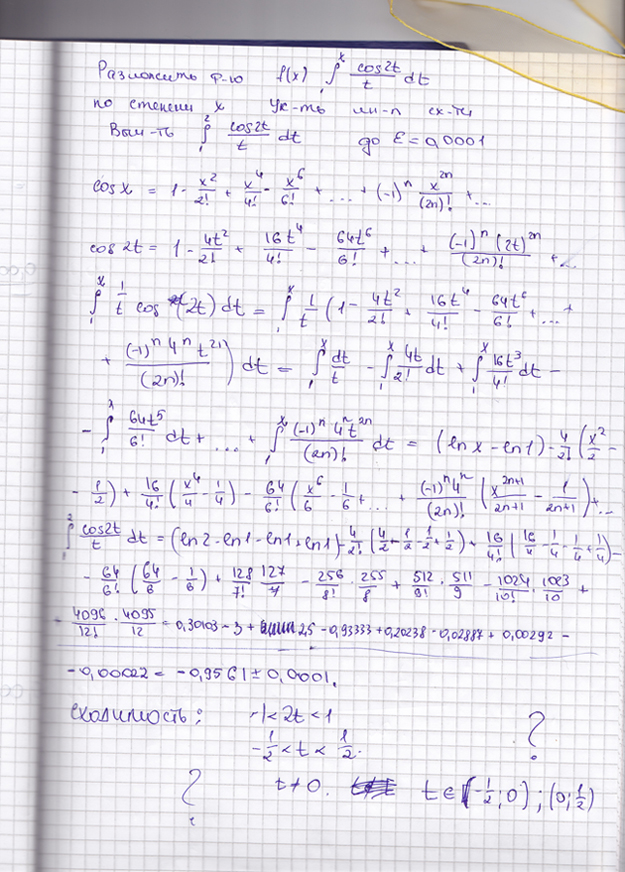 Разложить ф-ю f(x) ∫₁ˣ cos2t/t dt
по степени x Ук-ть ин-л сх-ти
Выч-ть ∫₁² cos2t/t dt до ε = 0,0001
cos x = 1 - x²/2! + x⁴/4! - x⁶/6! + ... + (-1)ⁿ x²ⁿ/(2n)! + ...
cos 2t = 1 - 4t²/2! + 16t⁴/4! - 64t⁶/6! + ... + (-1)ⁿ(2t)²ⁿ/(2n)! + ...
∫₁ˣ 1/t cos (2t) dt = ∫₁ˣ 1/t (1 - 4t²/2! + 16t⁴/4! - 64t⁶/6! + ... +
+ (-1)ⁿ 4ⁿ t²ⁿ/(2n)!) dt = ∫₁ˣ dt/t - ∫₁ˣ 4t/2! dt + ∫₁ˣ 16t³/4! dt -
- ∫₁ˣ 64t⁵/6! dt + ... + ∫₁ˣ (-1)ⁿ 4ⁿ t²ⁿ/(2n)! dt = (ln x - ln 1) - 4/2! (x²/2 -
- 1/2) + 16/4! (x⁴/4 - 1/4) - 64/6! (x⁶/6 - 1/6 + ... + (-1)ⁿ4ⁿ/(2n)! (x²ⁿ⁺¹/2n+1 - 1/2n+1) + ...
∫₁² cos2t/t dt = (ln 2 - ln 1 - ln 1 + ln 1) - 4/2! (4/2 - 1/2 - 1/2 + 1/2) + 16/4! (16/4 - 1/4 - 1/4 + 1/4) -
- 64/6! (64/6 - 1/6) + 128/7! · 127/7 - 256/8! · 255/8 + 512/9! · 511/9 - 1024/10! · 1023/10 +
- 4096/12! · 4095/12 = 0,30103 - 3 + 2,5 - 0,93333 + 0,20238 - 0,02887 + 0,00292 -
- 0,00022 = -0,9561 ± 0,0001.
сходимость: -1 < 2t < 1 ?
-1/2 < t < 1/2.
? t ≠ 0. t ∈ (-1/2; 0) ; (0; 1/2)